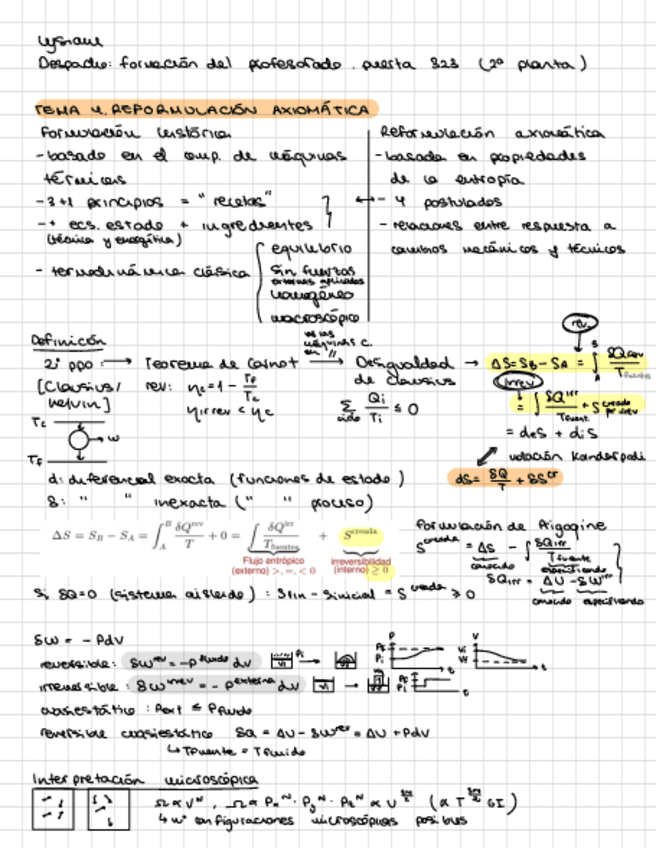 Despacho: formación del profesorado. puerta 323 (2ª planta)
TEMA 4. REFORMULACIÓN AXIOMÁTICA
Formulación histórica
- basado en el comp. de máquinas
térmicas
- 3+1 principios = "recetas"
- + ecs. estado + ingredientes
(térmica y energética)
- termodinámica clásica
equilibrio
sin fuerzas
externas aplicadas
homogéneo
macroscópico
Reformulación axiomática
- basada en propiedades
de la entropía
- 4 postulados
- relaciones entre respuesta a
cambios mecánicos y técnicos
Definición
2º ppo → Teorema de Carnot → Desigualdad
de Clausius
[Clausius/
Kelvin]
rev: ηc = 1 - TF/Tc
ηirrev < ηc
Σciclo Qi/Ti ≤ 0
rev.
→ ΔS = SB - SA = ∫
irrev
= deS + diS
notación
dS = δQ/T + δScr
Tc
w
TF
d: diferencial exacta (funciones de estado)
δ: " " inexacta (" " proceso)
ΔS = SB − SA = ∫AB δQrev/T + 0 = ∫ δQirr/Tfuentes + Screada
Flujo entrópico
(externo) >, =, < 0
irreversibilidad
(interno) ≥ 0
Formulación de Prigogine
Screada = ΔS - ∫ δQirr/Tfuente
conocido especificando
δQirr = ΔU - δWirr
conocido especificando
Si δQ=0 (sistema aislado): Sfin - Sinicial = Screada ≥ 0
δW = - PdV
reversible: δWrev = -Pfluido dV
irreversible: δWirrev = - Pexterna dV
cuasiestático: Pext ≤ Pfluido
reversible cuasiestático δQ = ΔU - δWrev = ΔU + PdV
↳ Tfuente = Tfluido
Interpretación microscópica
Ω ∝ VN, Ω ∝ PxN · PyN · PzN ∝ U3N/2 (∝ T3N/2 GI)
↳ nº configuraciones microscópicas posibles